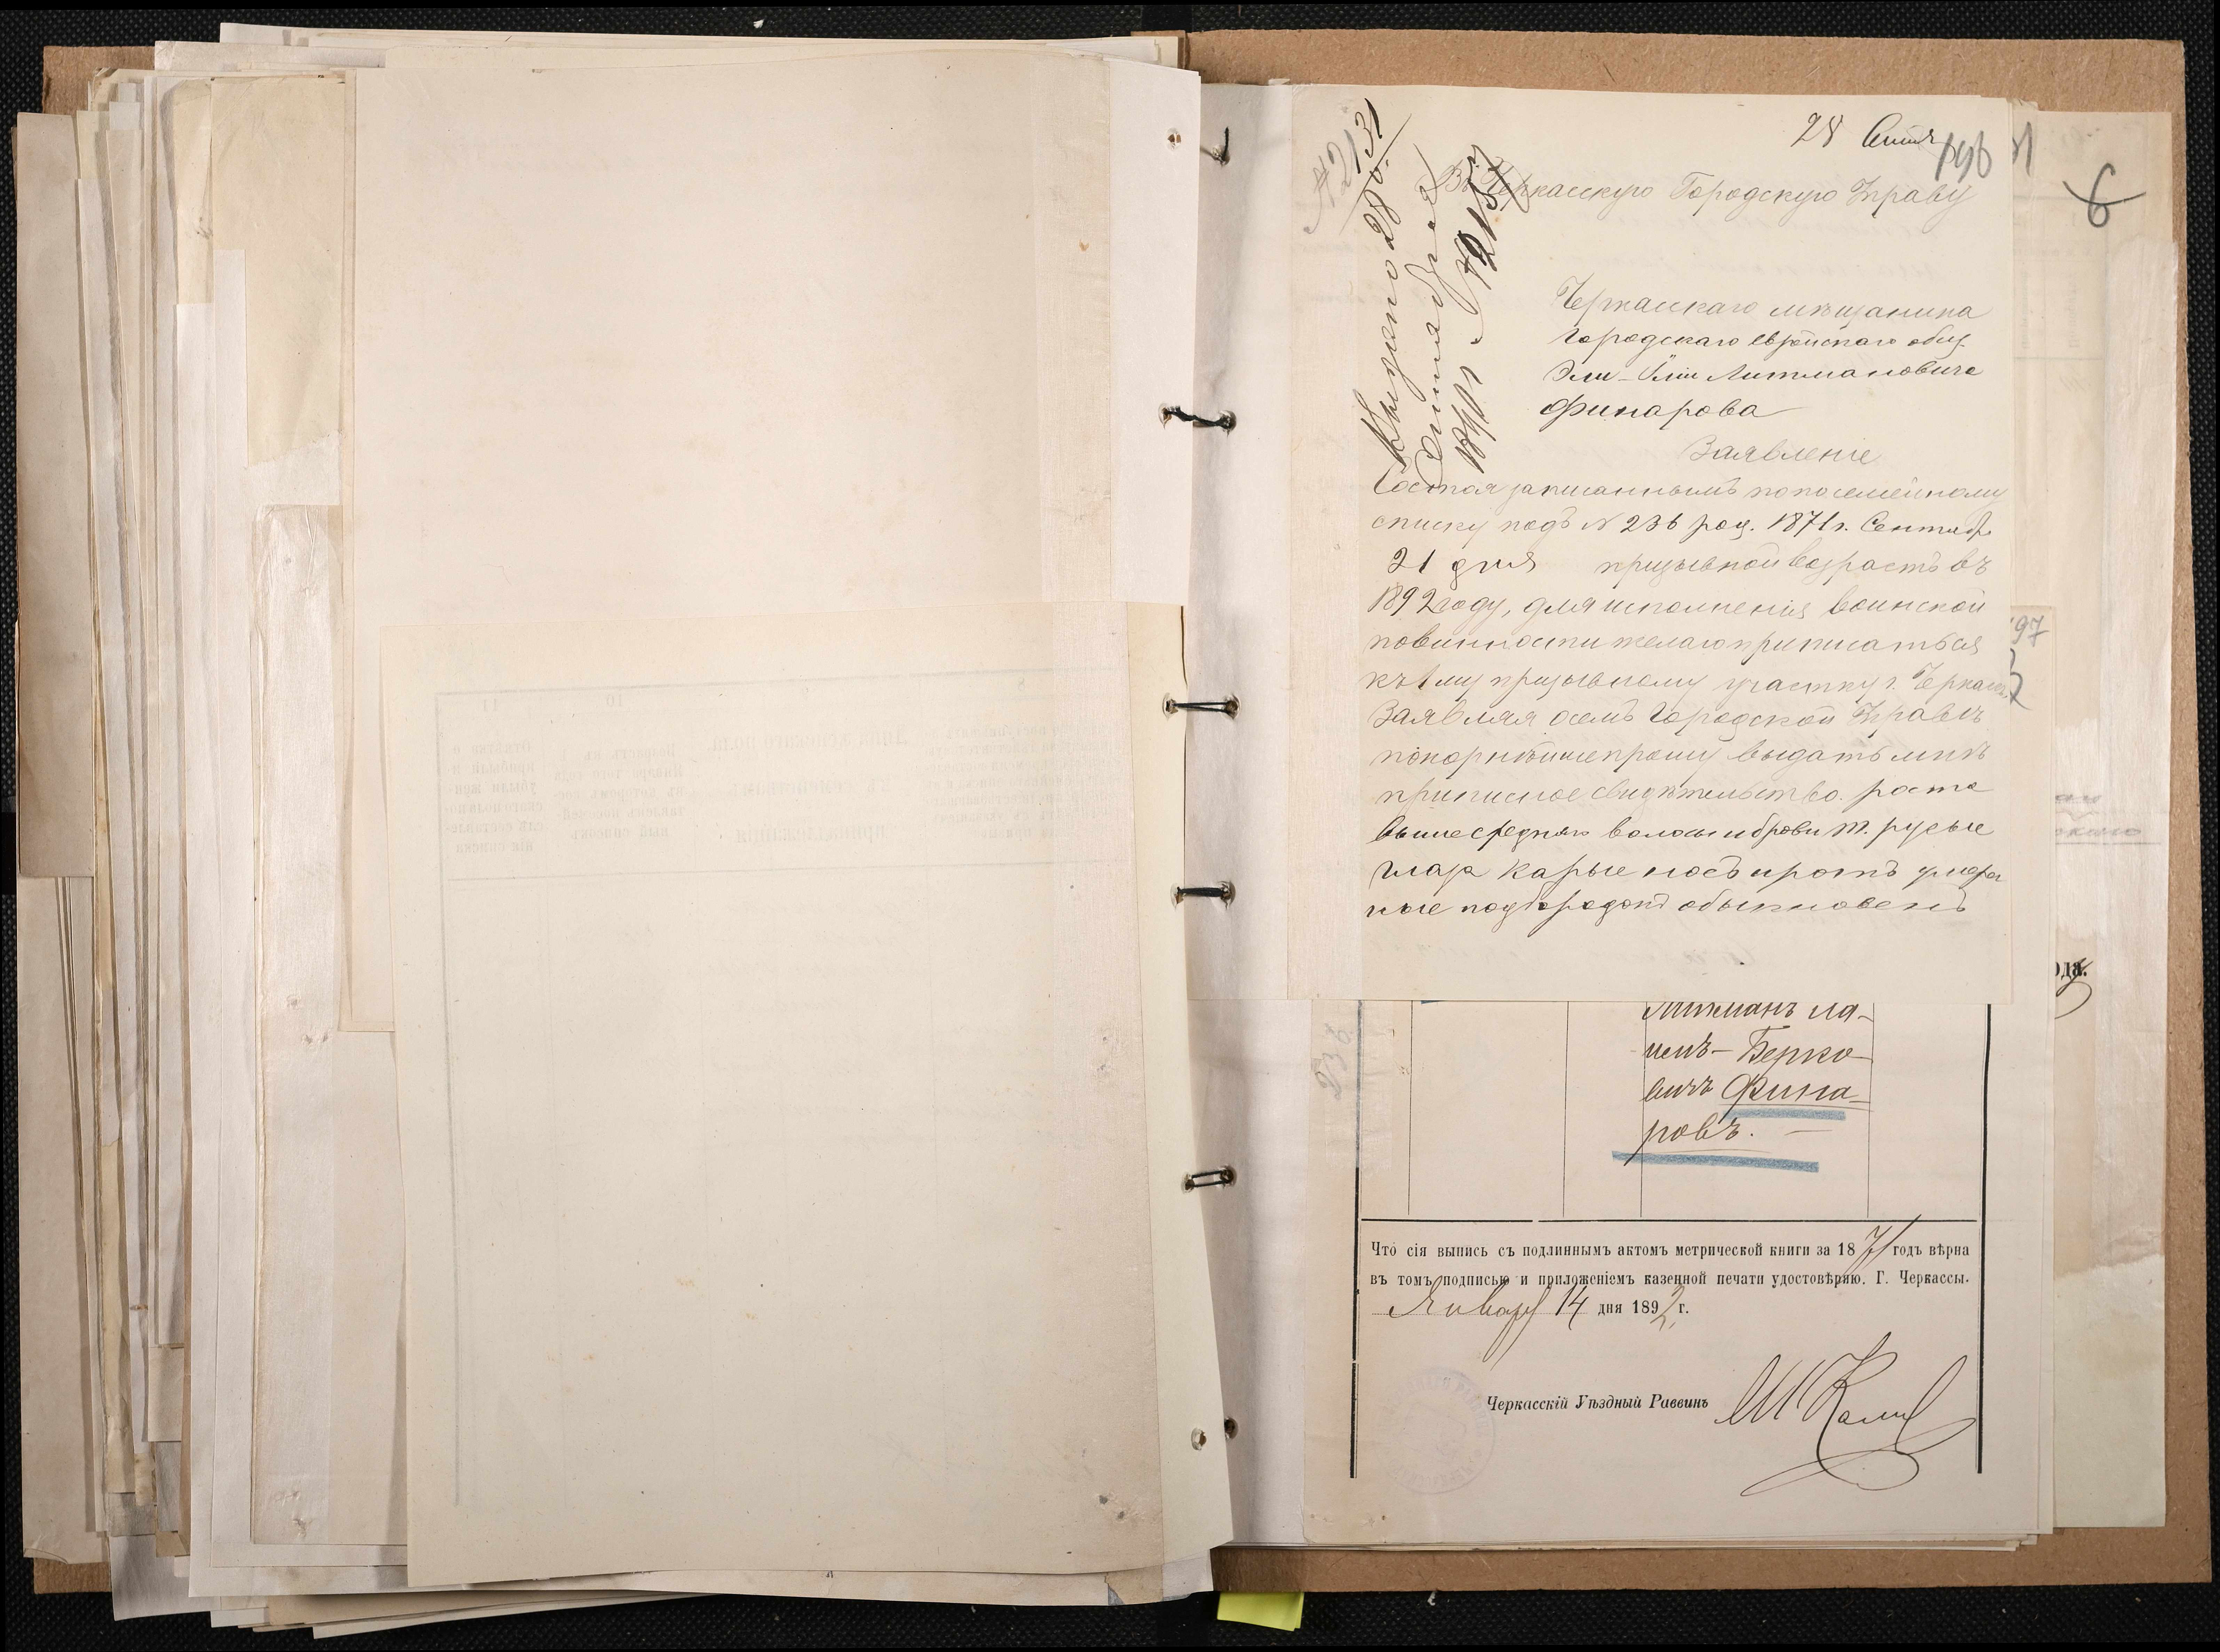 28 Сент
196
№ 2131
280.
Въ Черкасскую Городскую Управу
Выдено 28
Сентября
1891 г. № 2157
Черкасскаго мѣщанина
городскаго еврейскаго общ.
Эли- Литмановича
Финарова
Заявленіе
Состоя записаннымъ по посемейному
списку подъ № 236 род. 1871 г. Сентябр
21 дня призывной возрастъ въ
1892 году, для исполненія воинской
повинности желаю приписаться
къ 1му призывному участку г. Черкассъ
Заявляя о семъ Городской Управѣ
покорнѣйше прошу выдать мнѣ
приписное свидѣтельство. роста
выше средняго волосы и брови т. русые
глаза карые носъ и ротъ умѣрен
ные подбородокъ обыкновенъ
6
97
236
Литманъ
Берко-
вичъ Фина-
ровъ. —
ода.
Что сія выпись съ подлиннымъ актомъ метрической книги за 1871 годъ вѣрна
въ томъ подписью и приложеніемъ казенной печати удостовѣряю. Г. Черкассы.
Январ 14 дня 1892 г.
Черкасскій Уѣздный Раввинъ